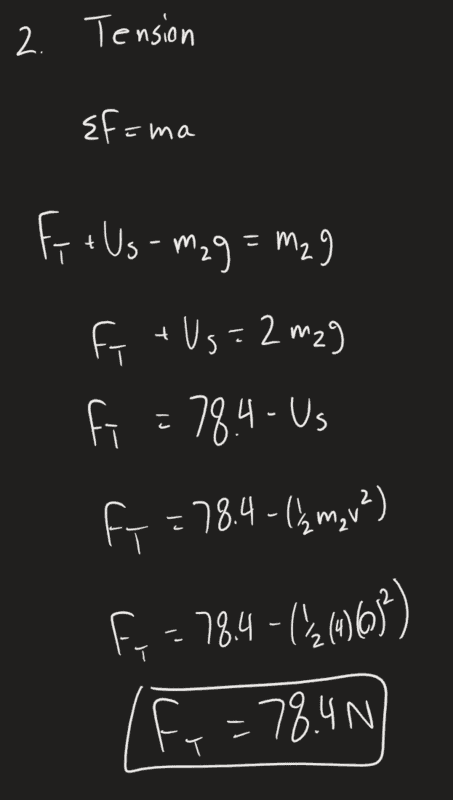 2. Tension
ΣF = ma
F_T + U_s - m₂g = m₂g
F_T + U_s = 2 m₂g
F_T = 78.4 - U_s
F_T = 78.4 - (½ m₂v²)
F_T = 78.4 - (½ (4)(0)²)
F_T = 78.4 N